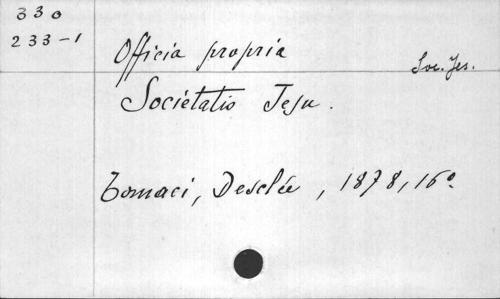 330
233-1
Officia propria
Soc. Jes.
Societatis Jesu.
Tornaci, Desclée, 1878, 16°.